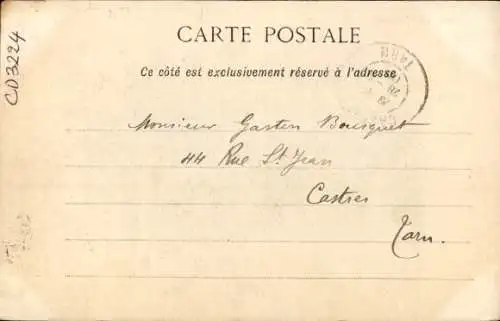 CARTE POSTALE
Ce côté est exclusivement réservé à l'adresse
Monsieur Gaston Bousquet
44 Rue St Jean
Castres
Tarn.
CD3224
TARN